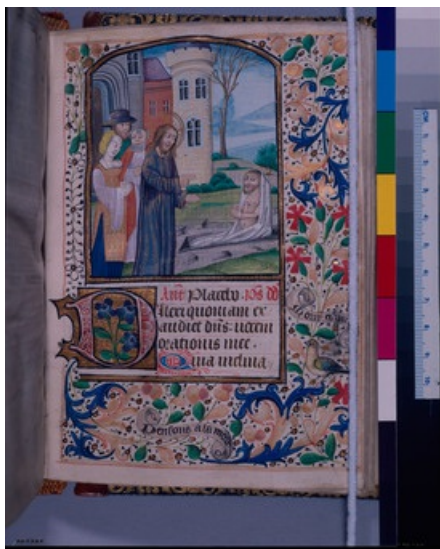 Placebo.
Dilexi quoniam ex
audiet dns: vocem
orationis mee.
Quia inclina
Pensons a la mort